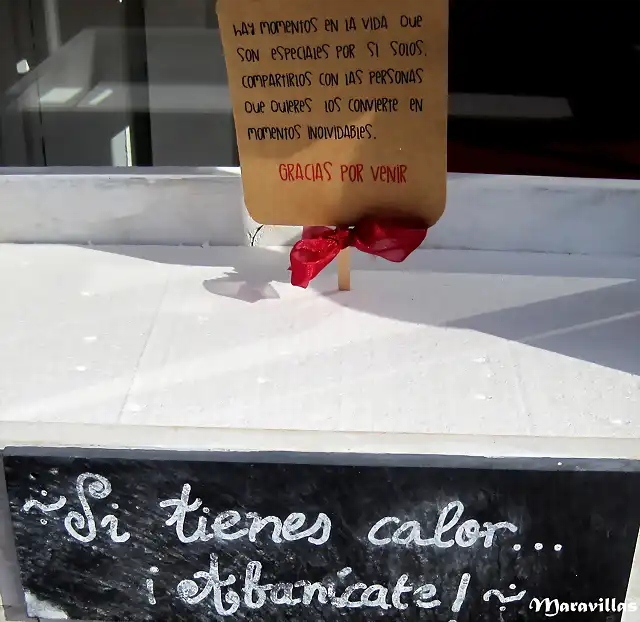 HAY MOMENTOS EN LA VIDA QUE
SON ESPECIALES POR SI SOLOS.
COMPARTIRLOS CON LAS PERSONAS
QUE QUIERES LOS CONVIERTE EN
MOMENTOS INOLVIDABLES.
GRACIAS POR VENIR
~Si tienes calor...
¡Abanícate!~
Maravillas